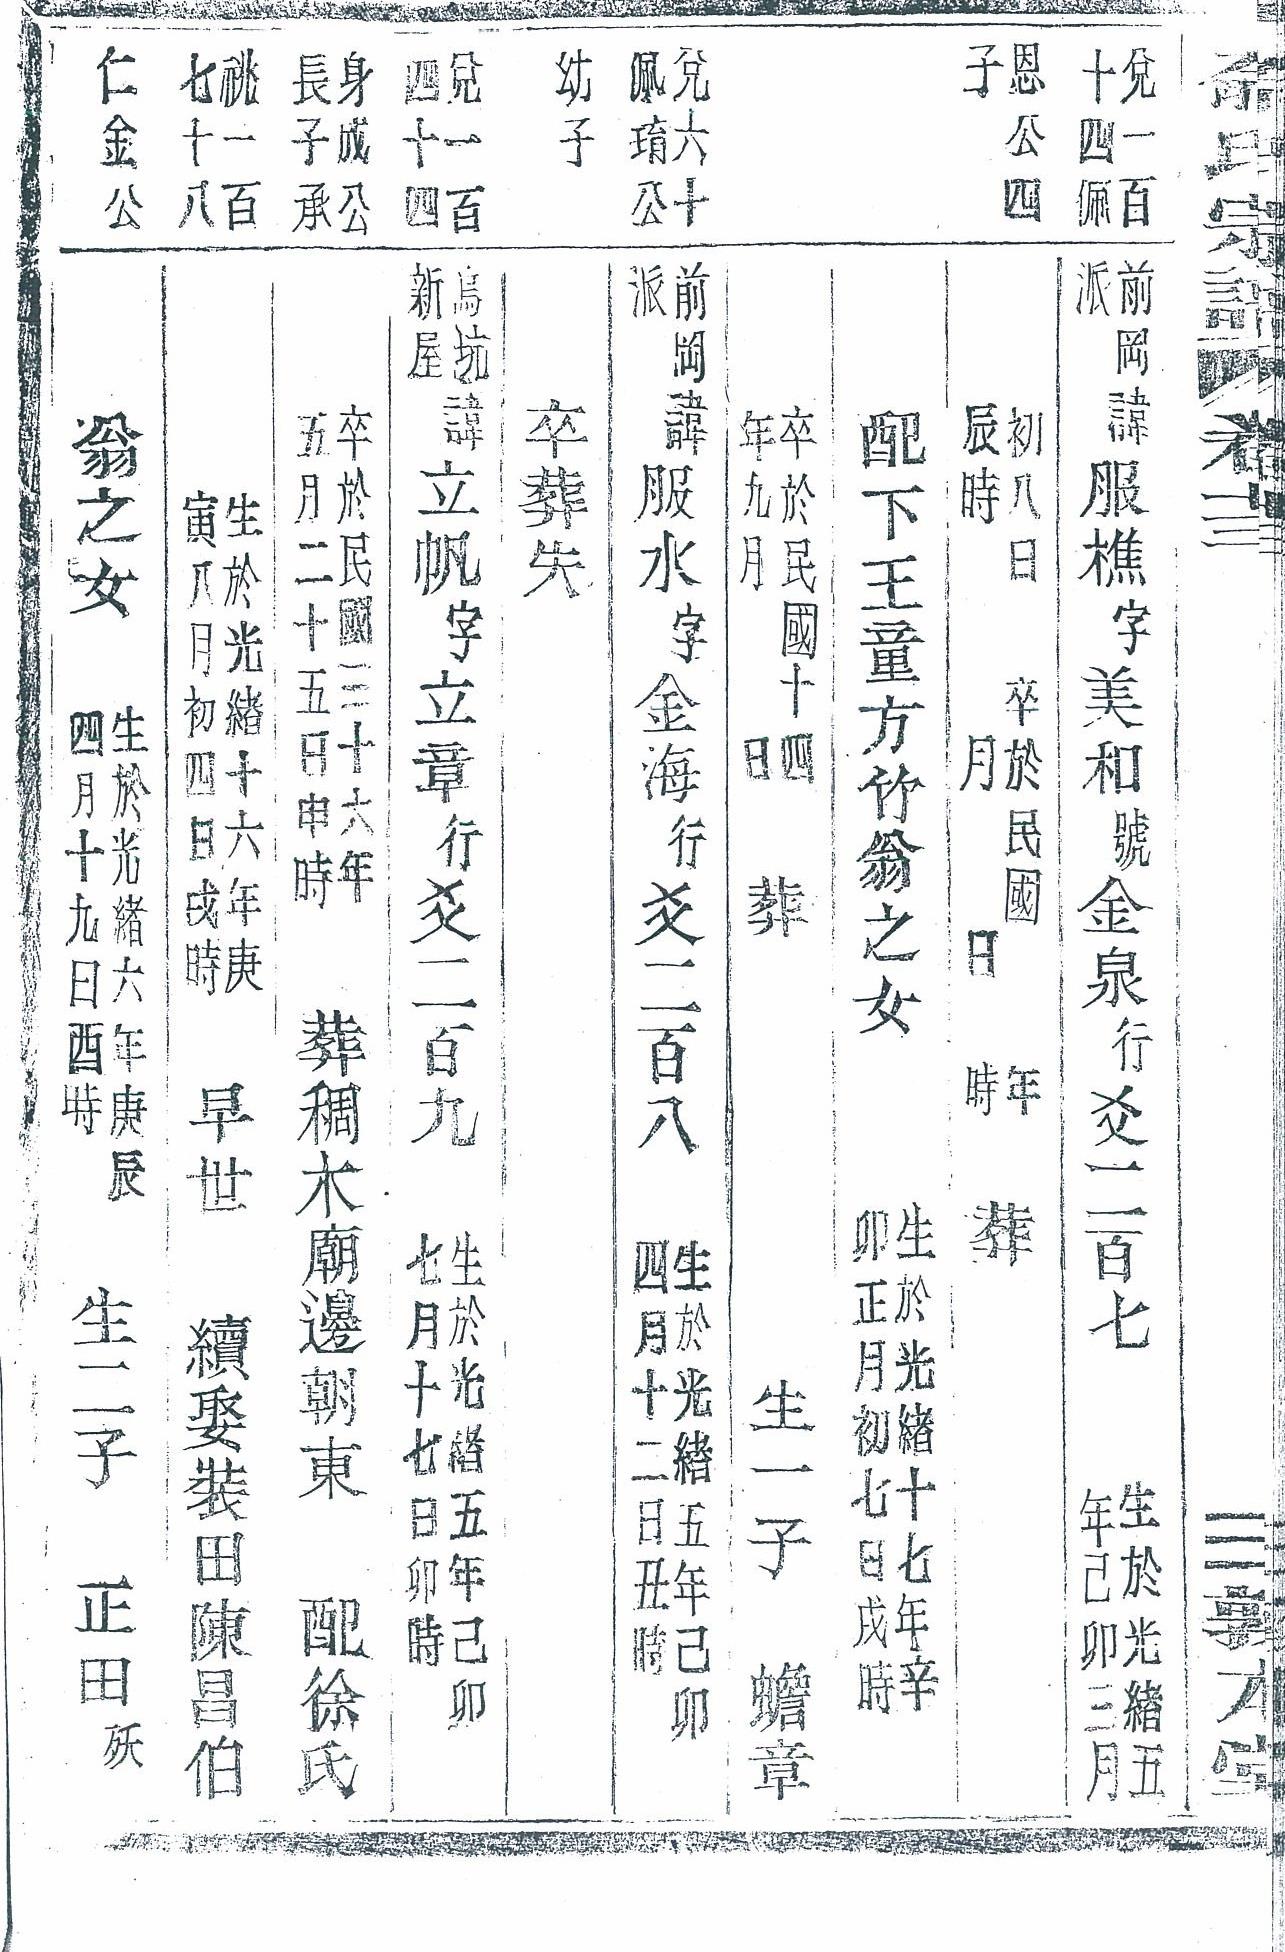 宗譜
兌一百
十四佩
恩公四
子
兌六十
佩琦公
幼子
兌一百
四十四
身成公
長子承
祧一百
七十八
仁金公
前岡派諱服樵字美和號金泉行爻二百七 生於光緒五年己卯三月
初八日辰時 卒於民國 年 月 日 時 葬
配下王童方竹翁之女 生於光緒十七年辛卯正月初七日戌時
卒於民國十四年九月 日 葬 生一子 蟾章
前岡派諱服水字金海行爻二百八 生於光緒五年己卯四月十二日丑時
卒葬失
烏坑新屋諱立帆字立章行爻二百九 生於光緒五年己卯七月十七日卯時
卒於民國三十六年五月二十五日申時 葬稠木廟邊朝東 配徐氏
生於光緒十六年庚寅八月初四日戌時 早世 續娶裝田陳昌伯
翁之女 生於光緒六年庚辰四月十九日酉時 生二子 正田殀